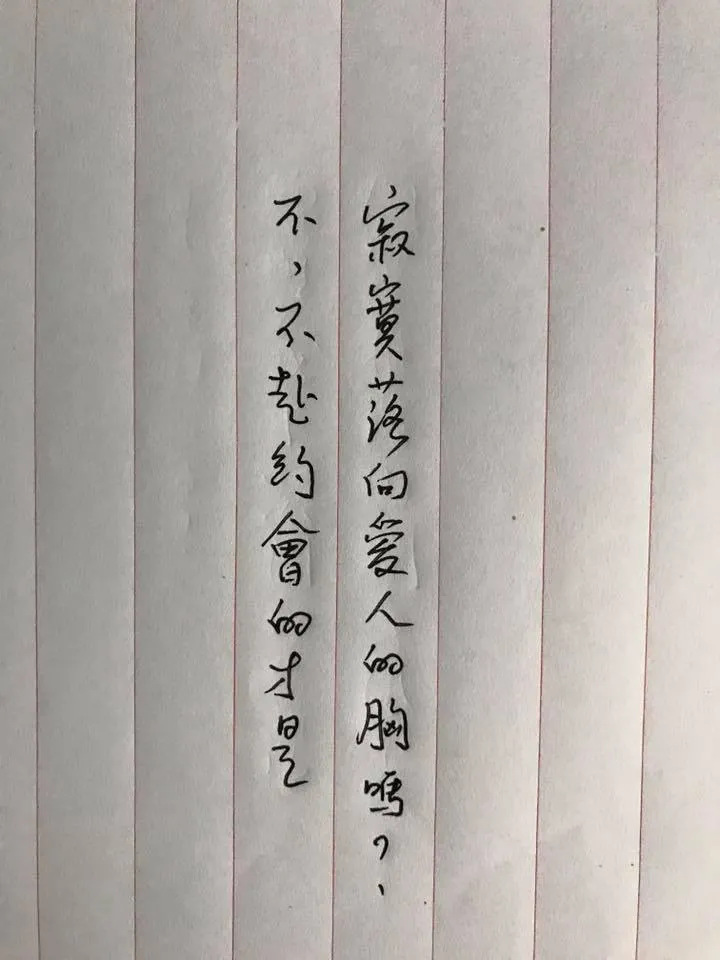 寂寞落向愛人的胸嗎？
不，不赴約會的才是